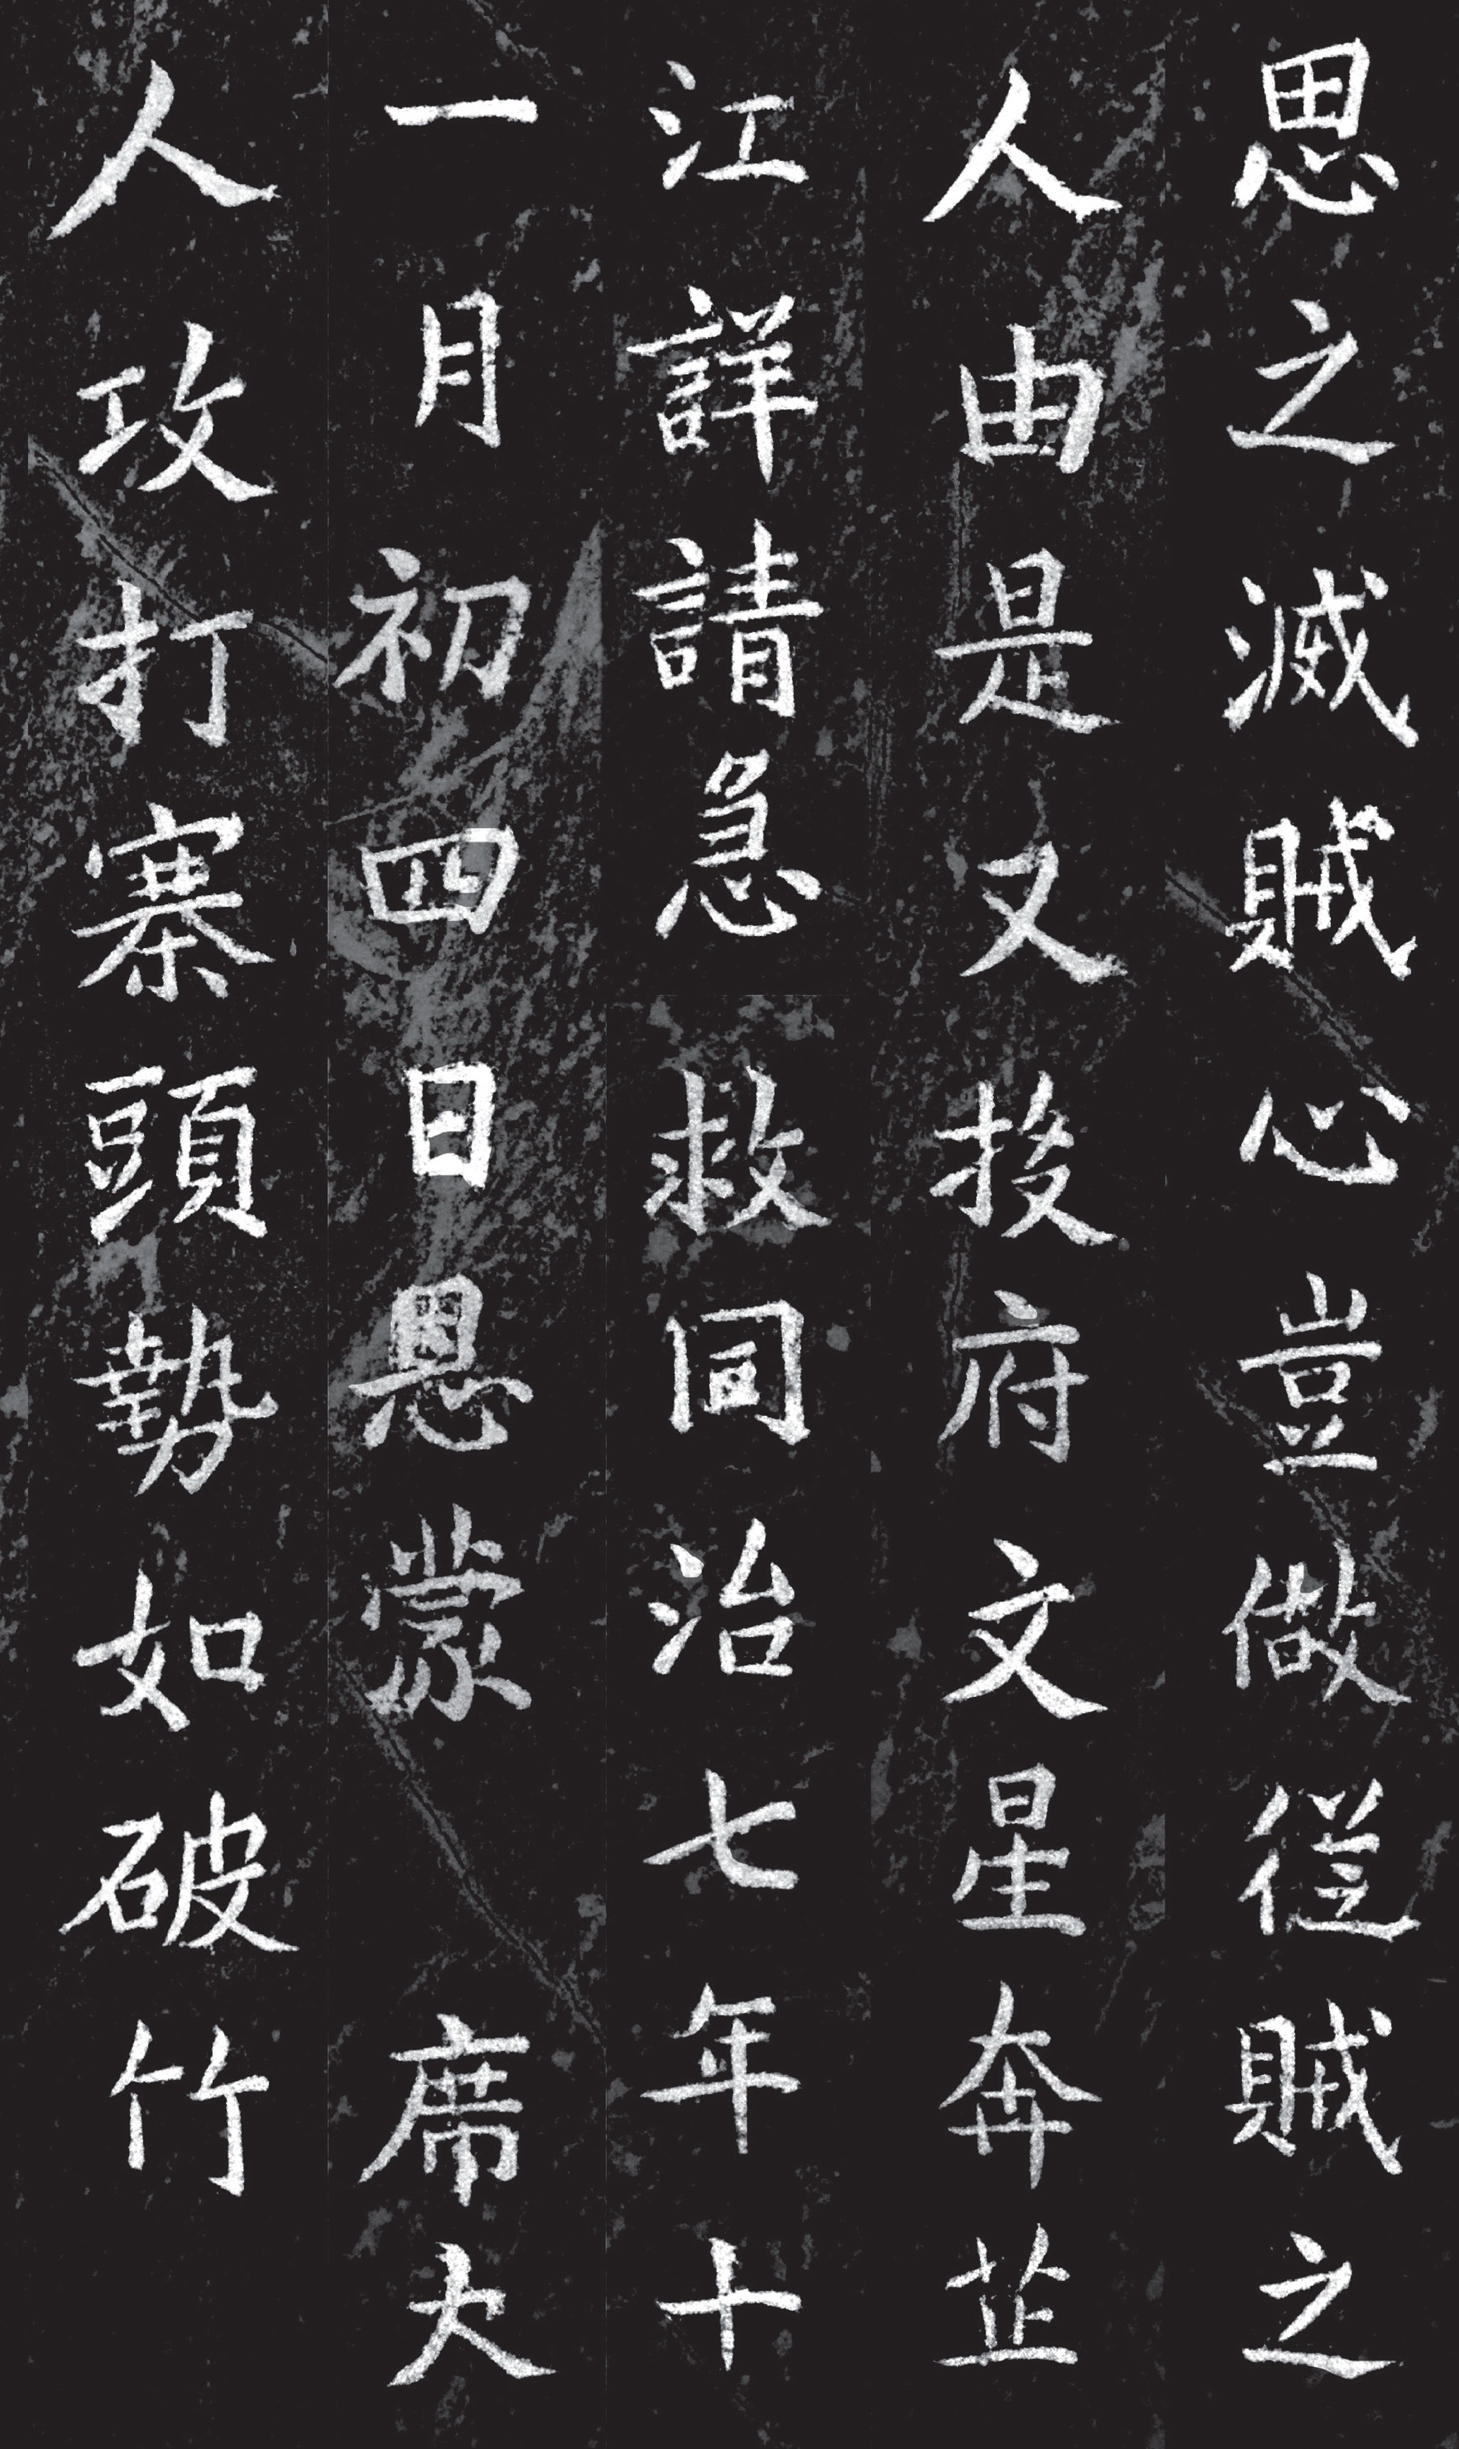 思之滅賊心豈做從賊之
人由是又投府文星奔芷
江詳請急救同治七年十
一月初四日恩蒙 席大
人攻打寨頭勢如破竹